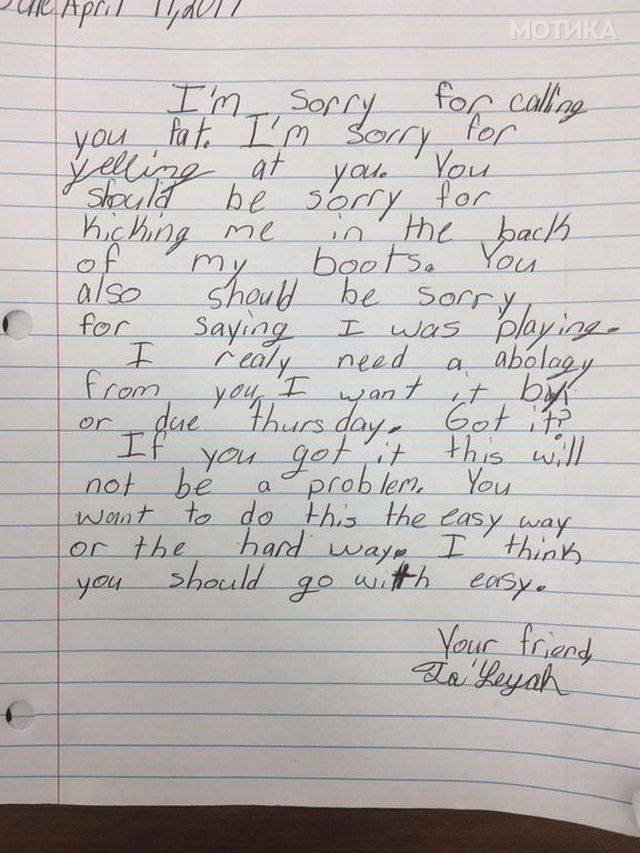 Date April 11, 2017
МОТИКА
I'm sorry for calling
you fat. I'm sorry for
yelling at you. You
should be sorry for
kicking me in the back
of my boots. You
also should be sorry
for saying I was playing.
I realy need a abolagy
from you, I want it by
or due thursday. Got it?
If you got it this will
not be a problem. You
want to do this the easy way
or the hard way. I think
you should go with easy.
Your friend,
Ja'Leyah